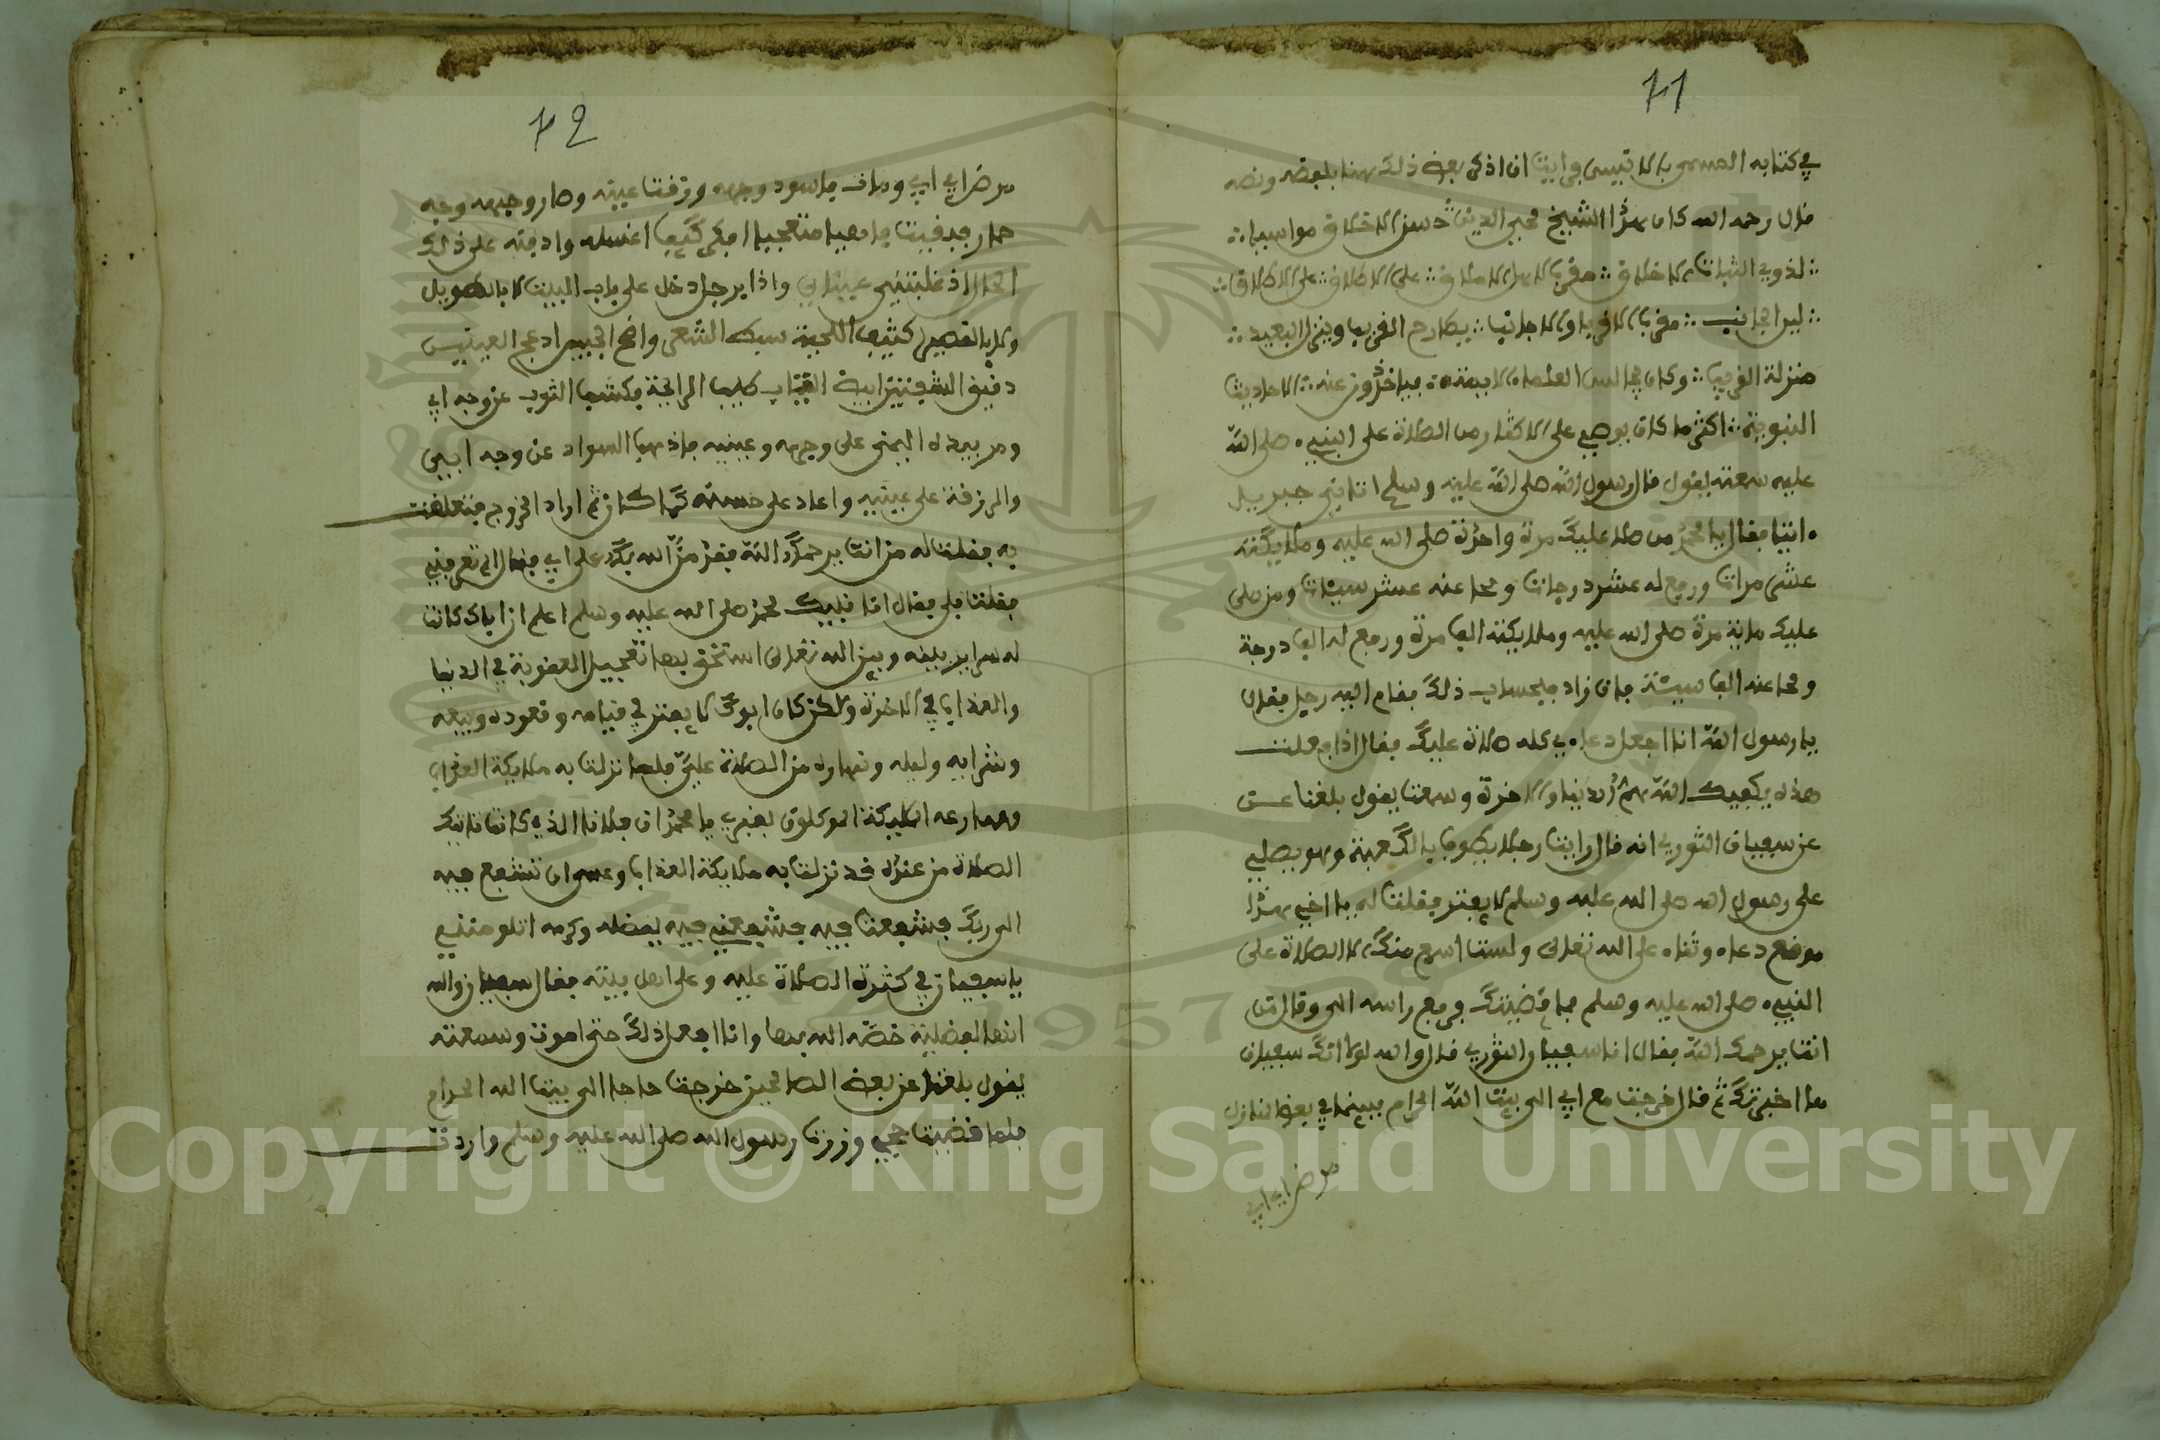 71
في كتابه المسمى بالانيس فرايت ان اذكر بعض ذلك هنا بلفظه ونصه
قال رحمه الله كان هذا الشيخ محيي الدين حسن الاخلاق مواسيا
لذوي الاخلاق على الاطلاق
لين الجانب الفريب وينزل البعيد
منزلة الفريب وكان مجالس العلماء ياخذون عنه الاحاديث
النبوية اكثر ما كان يوصي على الاكثار من الصلاة على النبيء صلى الله
عليه سمعته يقول قال رسول الله صلى الله عليه وسلم اتاني جبريل
انبا فقال يا محمد من صلا عليك مرة واحدة صلى الله عليه وملايكته
عشر مرات ورفع له عشر درجات ومحا عنه عشر سيئات ومن صلى
عليك ماية مرة صلى الله عليه وملايكته الف مرة ورفع له الف درجة
ومحا عنه الف سيئة فان زاد فبحساب ذلك فقام اليه رجل فقال
يا رسول الله انا اجعل دعاءي كله صلاة عليك فقال اذا فعلت
هذا يكفيك الله هم الدنيا والاخرة وسمعته يقول بلغنا عن
عن سفيان الثوري انه قال رايت رجلا يطوف بالكعبة وهو يصلي
على رسول الله صلى الله عليه وسلم لا يفتر فقلت له يا اخي هذا
موضع دعاء وثناء على الله تعالى ولست اسمع منك الا الصلاة على
النبيء صلى الله عليه وسلم فما قضيتك فرفع راسه الي وقال من
انت يرحمك الله فقال انا سفيان الثوري قال والله لولا انك سفيان
ما اخبرتك ثم قال خرجت مع ابي الى بيت الله الحرام فبينما في بعض المنازل
مرض ابي
72
مرض ابي ومات فاسود وجهه وزرقت عينه وصار وجهه وجه
حمار فبقيت باهيا متعجبا افكر كيف اغسله وادفنه على ذلك
الحال اذ غلبتني عيناي واذا برجل دخل على باب البيت لا بالطويل
ولا بالقصير كثيف اللحية سبك الشعر واضح الجبين ادعج العينين
دقيق الشفتين ابيض الثياب طيب الرايحة فكشف الثوب عن وجه ابي
ومر بيده اليمنى على وجهه وعينيه فاذهب السواد عن وجه ابي
والزرقة على عينيه واعاد على حسنه كما كان ثم اراد الخروج فتعلقت
به فقلت له من انت يرحمك الله فقد من الله بك على ابي فقال الم تعرفني
فقلت بلى فقال انا نبيك محمد صلى الله عليه وسلم اعلم ان اباك كانت
له سراير بينه وبين الله تعالى استحق بها تعجيل العقوبة في الدنيا
والعذاب في الاخرة ولكن كان ابوك لا يفتر في قيامه وقعوده وبيعه
وشرايه وليله ونهاره من الصلاة علي فلما نزلت به ملايكة العذاب
الملايكة الموكلون بقبري يا محمد ان فلانا الذي كانت تاتيك
الصلاة من عنده قد نزلت به ملايكة العذاب وعسى ان تشفع فيه
الى ربك فشفعت فيه فشفعني فيه بفضله وكرمه
يا سفيان في كثرة الصلاة عليه وعلى اهل بيته فقال سفيان والله
انها لفضيلة خصه الله بها وانا اجعل ذلك حتى اموت وسمعته
يقول بلغنا عن بعض الصالحين خرجت حاجا الى بيت الله الحرام
فلما قضيت حجي وزرت رسول الله صلى الله عليه وسلم واردت
Copyright © King Saud University
1957